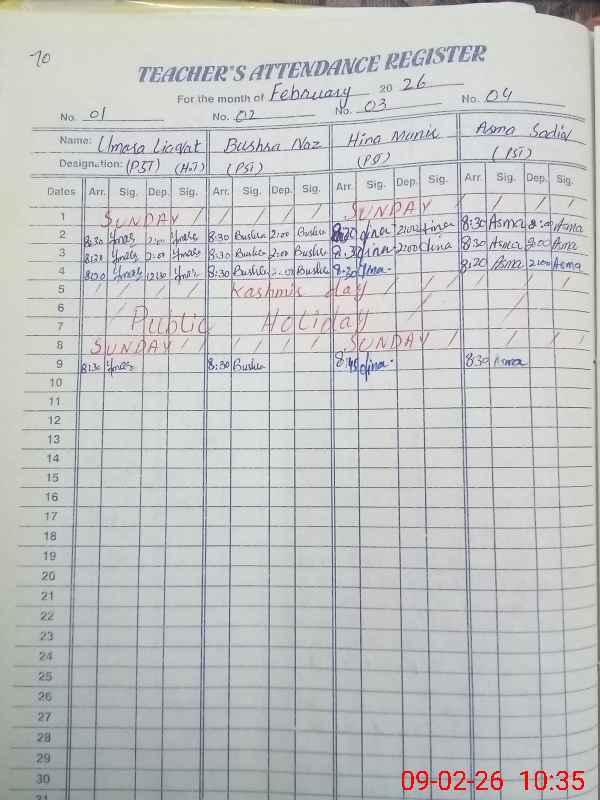 70
TEACHER'S ATTENDANCE REGISTER
For the month of February 20 26
No. 01 No. 02 No. 03 No. 04
Name: Umara Liaqat Bushra Naz Hina Munir Asma Sadia
Designation: (PST) (HoT) (PST) (PST)
Dates Arr. Sig. Dep. Sig. Arr. Sig. Dep. Sig. Arr. Sig. Dep. Sig. Arr. Sig. Dep. Sig.
1 SUNDAY / / / / / SUNDAY / / / / /
2 8:30 2:00 8:30 Bushra 2:00 Bushra 2:00 8:30 Asma 2:00 Asma
3 2:00 8:30 Bushra 2:00 Bushra 8:30 2:00 8:30 Asma 2:00 Asma
4 8:30 Bushra 2:00 Bushra 8:30 Asma 2:00 Asma
5 / / / / Kashmir day / / / / /
6
7 Public Holiday
8 SUNDAY / / / / / SUNDAY / / / / /
9 8:30 8:30 Bushra 8:45 8:30 Asma
10
11
12
13
14
15
16
17
18
19
20
21
22
23
24
25
26
27
28
29
30
31
09-02-26 10:35